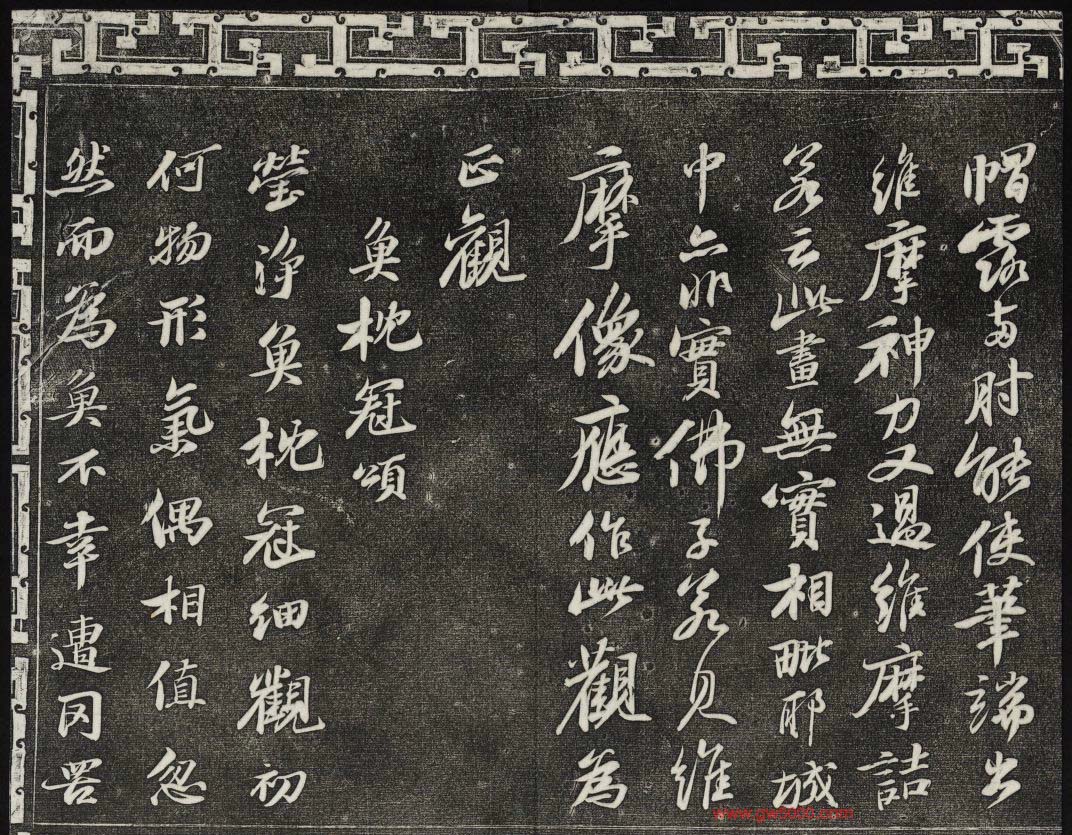 帽露两肘能使筆端出
維摩神力又過維摩詰
若云此畫無實相毗耶城
中亦非實佛子若見維
摩像應作此觀為
正觀
魚枕冠頌
瑩淨魚枕冠細觀初
何物形氣偶相值忽
然而為魚不幸遭网罟
www.gw3000.com